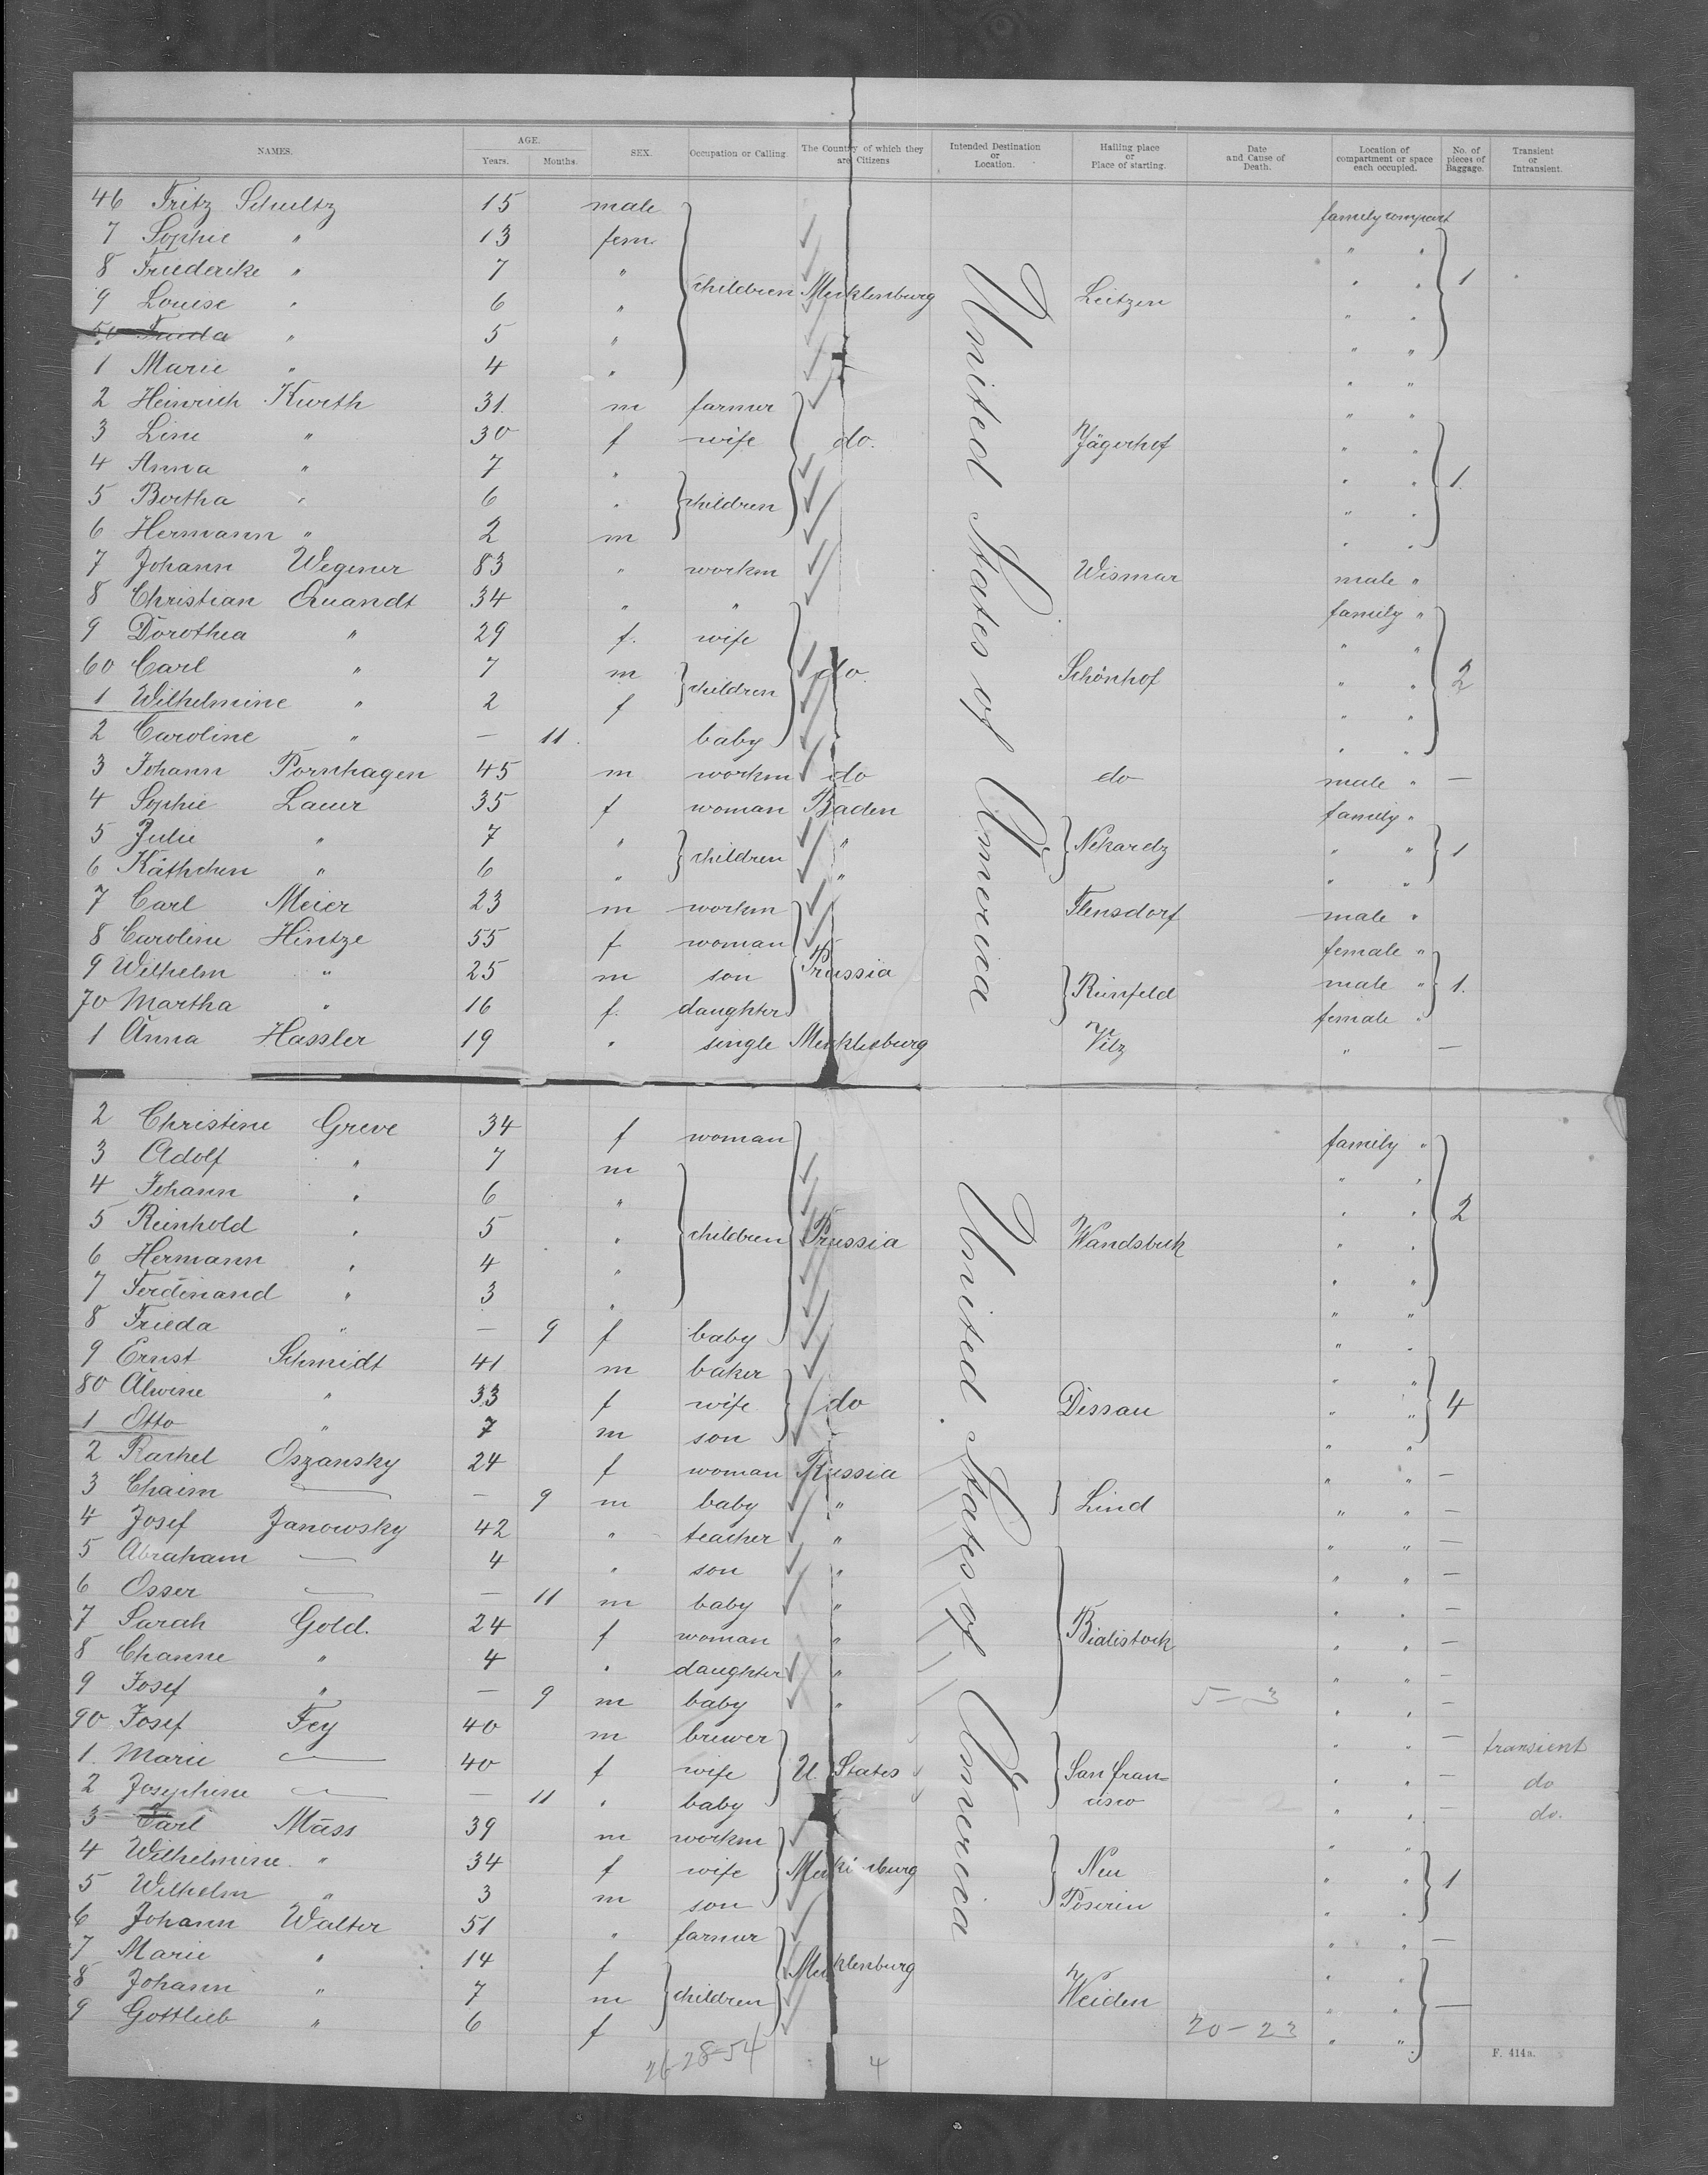 NAMES. AGE. Years. Months. SEX. Occupation or Calling. The Country of which they are Citizens Intended Destination or Location. Hailing place or Place of starting. Date and Cause of Death. Location of compartment or space each occupied. No. of pieces of Baggage. Transient or Intransient.
46 Fritz Schultz 15 male family compart
7 Sophie " 13 fem. " "
8 Friederike " 7 " " "
9 Louise " 6 " children Mecklenburg Leitzen " " 1
50 Frieda " 5 " " "
1 Marie " 4 " " "
2 Heinrich Kurth 31. m farmer " "
3 Line " 30 f wife do. Jägerhof " "
4 Anna " 7 " " "
5 Bertha " 6 " children " " 1.
6 Hermann " 2 m " "
7 Johann Wegener 83 " workm Wismar male "
8 Christian Quandt 34 " " family "
9 Dorothea " 29 f. wife " "
60 Carl " 7 m children do. Schönhof " " 2
1 Wilhelmine " 2 f " "
2 Caroline " — 11. baby " "
3 Johann Pornhagen 45 m workm do do male " —
4 Sophie Lauer 35 f woman Baden family "
5 Julie " 7 " children " " " 1
6 Käthchen " 6 " " " "
7 Carl Meier 23 m workm Flensdorf male "
8 Caroline Hintze 55 f woman female "
9 Wilhelm " 25 m son Prussia Reinfeld male " 1.
70 Martha " 16 f. daughter female "
1 Anna Hassler 19 " single Mecklenburg Vilz " —
2 Christine Greve 34 f woman family "
3 Adolf " 7 m " "
4 Johann " 6 " " "
5 Reinhold " 5 " children Prussia Wandsbek " " 2
6 Hermann " 4 " " "
7 Ferdinand " 3 " " "
8 Frieda " — 9 f baby " "
9 Ernst Schmidt 41 m baker " "
80 Alwine " 33 f wife do Dessau " " 4
1 Otto " 7 m son " "
2 Rachel Oszansky 24 f woman Russia " " —
3 Chaim — — 9 m baby " Lind " " —
4 Josef Janowsky 42 " teacher " " " —
5 Abraham — 4 " son " " " —
6 Osser — — 11 m baby " " " —
7 Sarah Gold. 24 f woman " Bialistock " " —
8 Channe " 4 " daughter " " " —
9 Josef " — 9 m baby " 5-3 " " —
90 Josef Fey 40 m brewer " " — transient
1. Marie — 40 f wife U. States San Fran= " " — do
2 Josephine — — 11 " baby cisco " " — do.
3 Carl Mäss 39 m workm " "
4 Wilhelmine " 34 f wife Mecklenburg Neu " " 1
5 Wilhelm " 3 m son Poserin " "
6 Johann Walter 51 " farmer " " —
7 Marie " 14 f Mecklenburg " "
8 Johann " 7 m children Weiden " " —
9 Gottlieb " 6 f 20-23 " "
United States of America
United States of America
26-28-54 4
F. 414a.